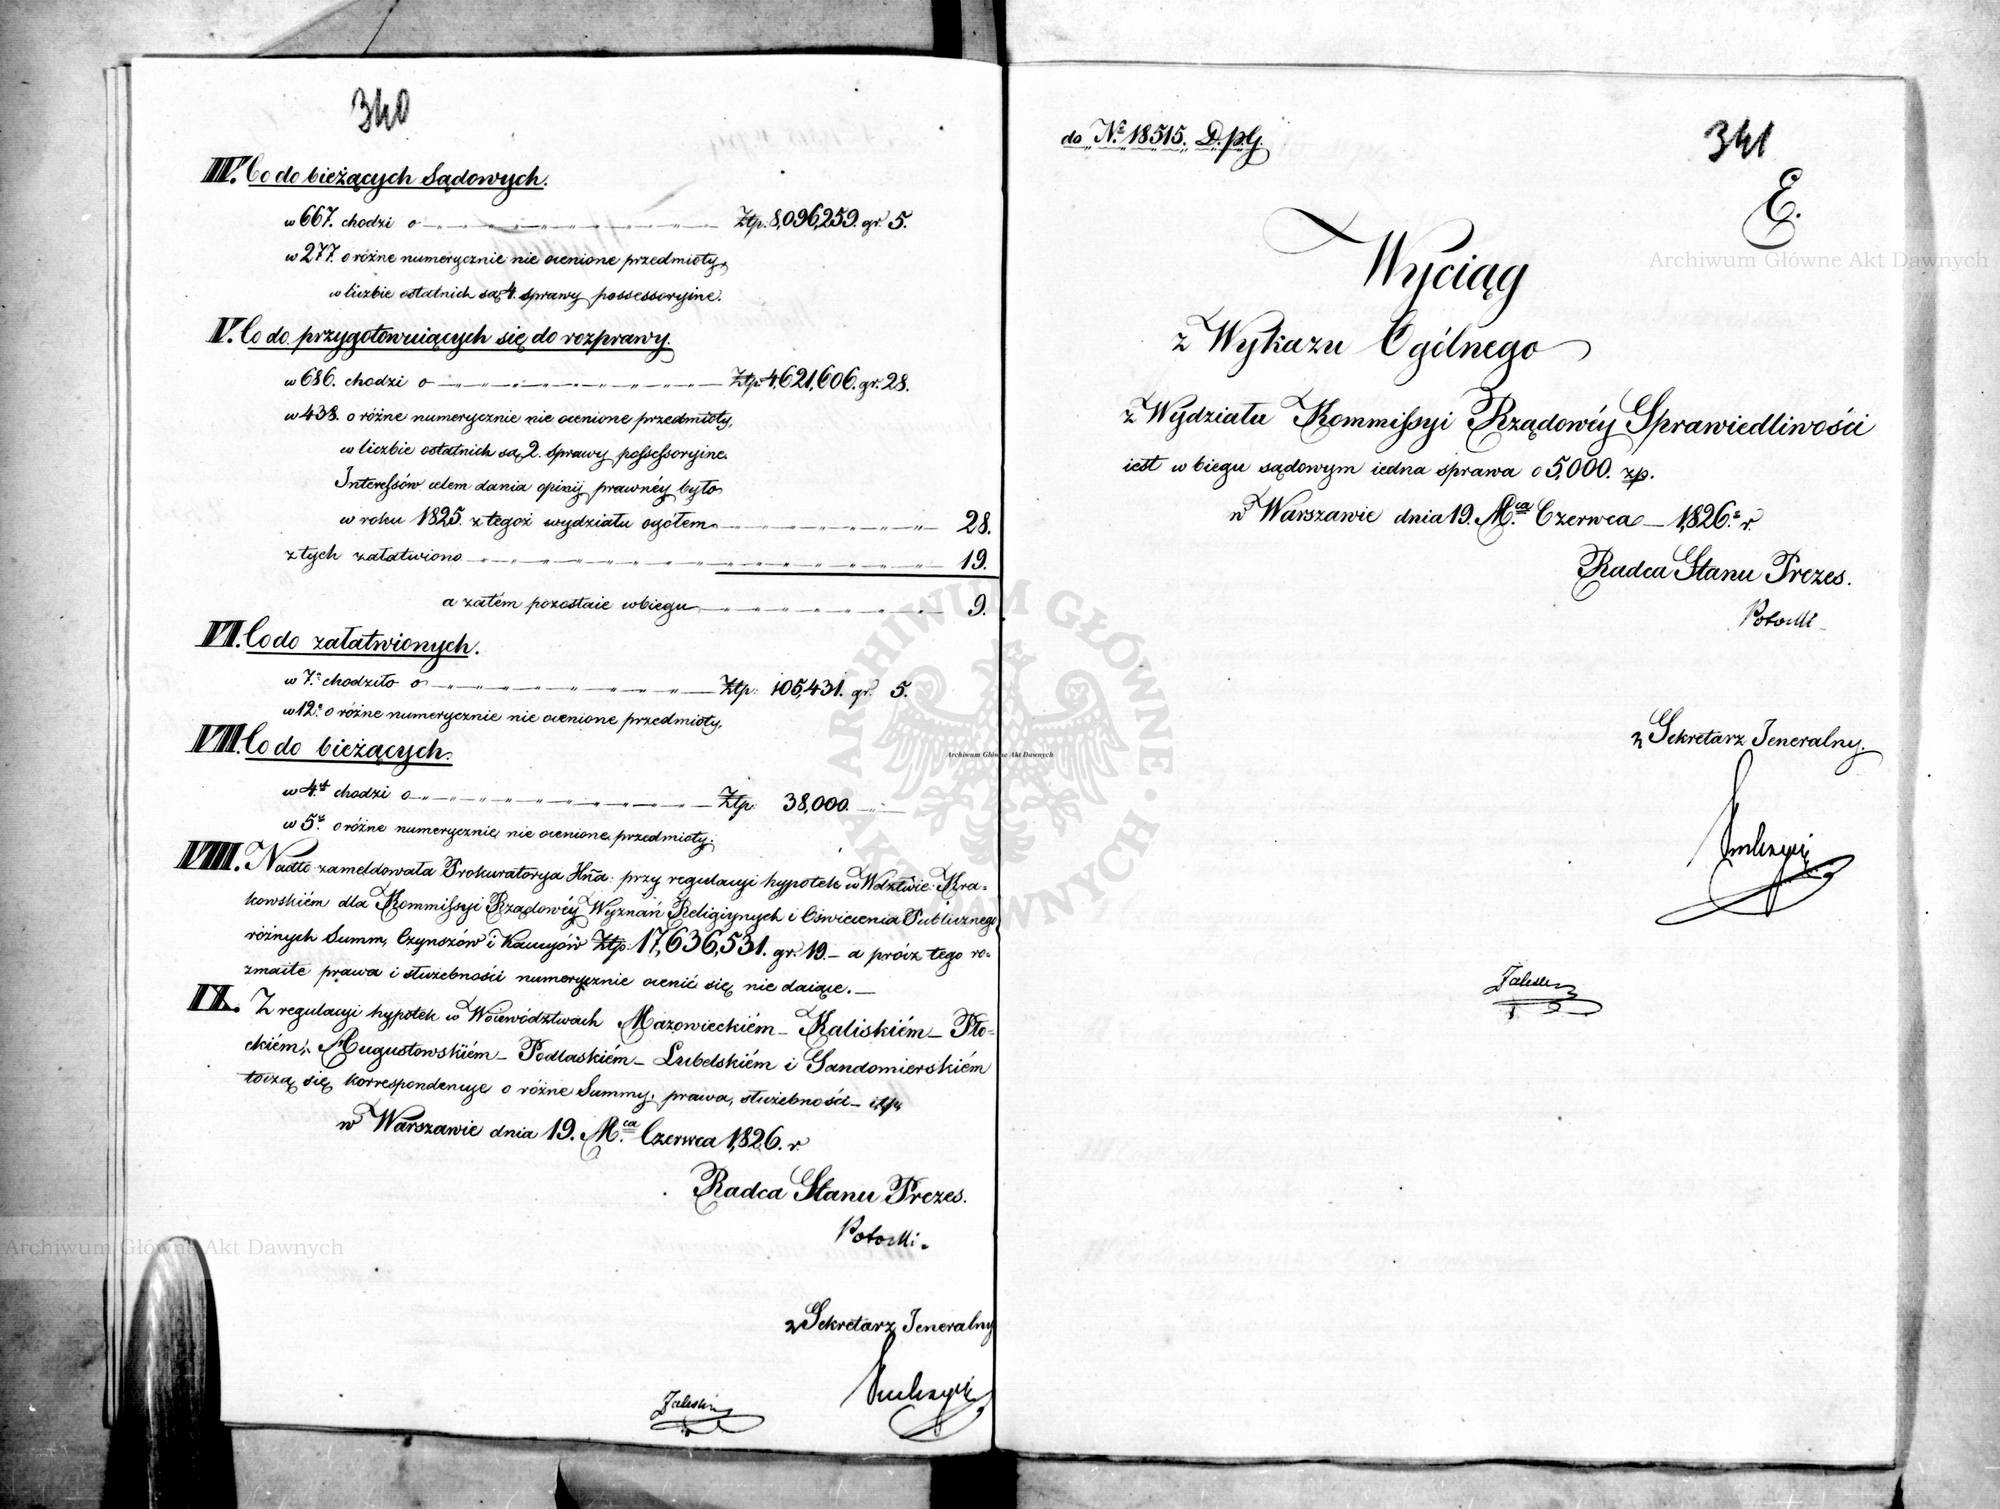 340
IV. Co do bieżących Sądowych.
w 667. chodzi o Ztp. 8,096,259. gr. 5.
w 277. o różne numerycznie nie ocenione przedmioty,
w liczbie ostatnich są 4. sprawy possessoryine.
V. Co do przygotowuiących się do rozprawy.
w 686. chodzi o Ztp. 4,621,606. gr. 28.
w 438. o różne numerycznie nie ocenione przedmioty,
w liczbie ostatnich są 2. sprawy possessoryine.
Interessów celem dania opinij prawnéy było
w roku 1825. z tegoż wydziału ogółem 28.
z tych załatwiono 19.
a zatém pozostaie w biegu 9.
VI. Co do załatwionych.
w 7. chodziło o Ztp. 105,431. gr. 5.
w 12. o różne numerycznie nie ocenione przedmioty.
VII. Co do bieżących.
w 4. chodzi o Ztp. 38,000.
w 5. o różne numerycznie nie ocenione przedmioty.
VIII. Nadto zameldowała Prokuratorya przy regulacyi hypotek w Wdztwie Kra-
kowskiém dla Kommissyi Rządowéy Wyznań Religiynych i Oświecenia Publicznego
różnych Summ, Czynszów i Kaucyów Ztp. 17,636,531. gr. 19. – a prócz tego ro-
zmaite prawa i służebności numerycznie ocenić się nie daiące. –
IX. Z regulacyi hypotek w Woiewództwach Mazowieckiém – Kaliskiém – Pło-
ckiém, Augustowskiém – Podlaskiém – Lubelskiém i Sandomierskiém
toczą się korrespondencye o różne Summy, prawa, służebności –
w Warszawie dnia 19. M.ca Czerwca 1826. r.
Radca Stanu Prezes.
Potocki.
z Sekretarz Jeneralny
Zaleski
do N.º 18515. D.p.G.
341
E.
Wyciąg
z Wykazu Ogólnego
z Wydziału Kommissyi Rządowéy Sprawiedliwości
iest w biegu sądowym iedna sprawa o 5,000. zp.
w Warszawie dnia 19. M.ca Czerwca – 1826. r
Radca Stanu Prezes.
Potocki
z Sekretarz Jeneralny.
Zaleski
Archiwum Główne Akt Dawnych
Archiwum Główne Akt Dawnych
Archiwum Główne Akt Dawnych
ARCHIWUM GŁÓWNE AKT DAWNYCH